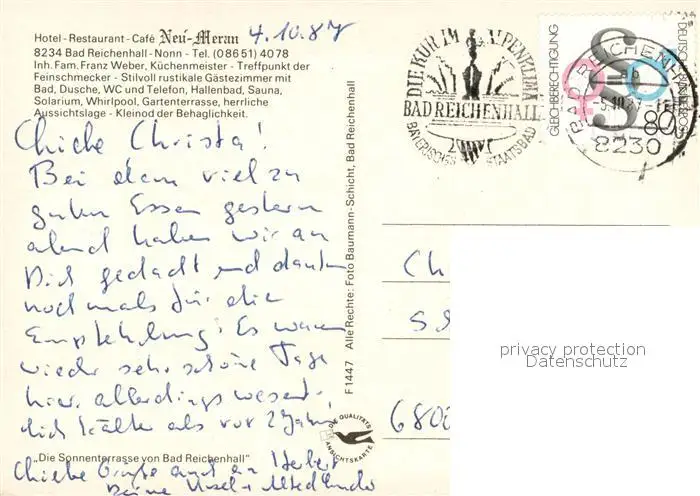 Hotel - Restaurant - Café Neu-Meran 4.10.87
8234 Bad Reichenhall - Nonn - Tel. (08651) 4078
Inh. Fam. Franz Weber, Küchenmeister - Treffpunkt der
Feinschmecker - Stilvoll rustikale Gästezimmer mit
Bad, Dusche, WC und Telefon, Hallenbad, Sauna,
Solarium, Whirlpool, Gartenterrasse, herrliche
Aussichtslage - Kleinod der Behaglichkeit.
Liebe Christa!
Bei dem viel zu
guten Essen gestern
abend haben wir an
Dich gedacht und danken
nochmals für die
Empfehlung! Es waren
wieder sehr schöne Tage
hier, allerdings wesent-
lich kälter als vor 2 Jahren
"Die Sonnenterrasse von Bad Reichenhall"
Liebe Grüße auch an Herbert
Deine
F 1447 Alle Rechte: Foto Baumann-Schicht, Bad Reichenhall
DIE QUALITÄTS
ANSICHTSKARTE
DIE KUR IM ALPENKLIMA
BAD REICHENHALL
BAYERISCHES STAATSBAD
GLEICHBERECHTIGUNG
DEUTSCHE BUNDESPOST
80
BAD REICHENHALL
8230
Ch
680
privacy protection
Datenschutz